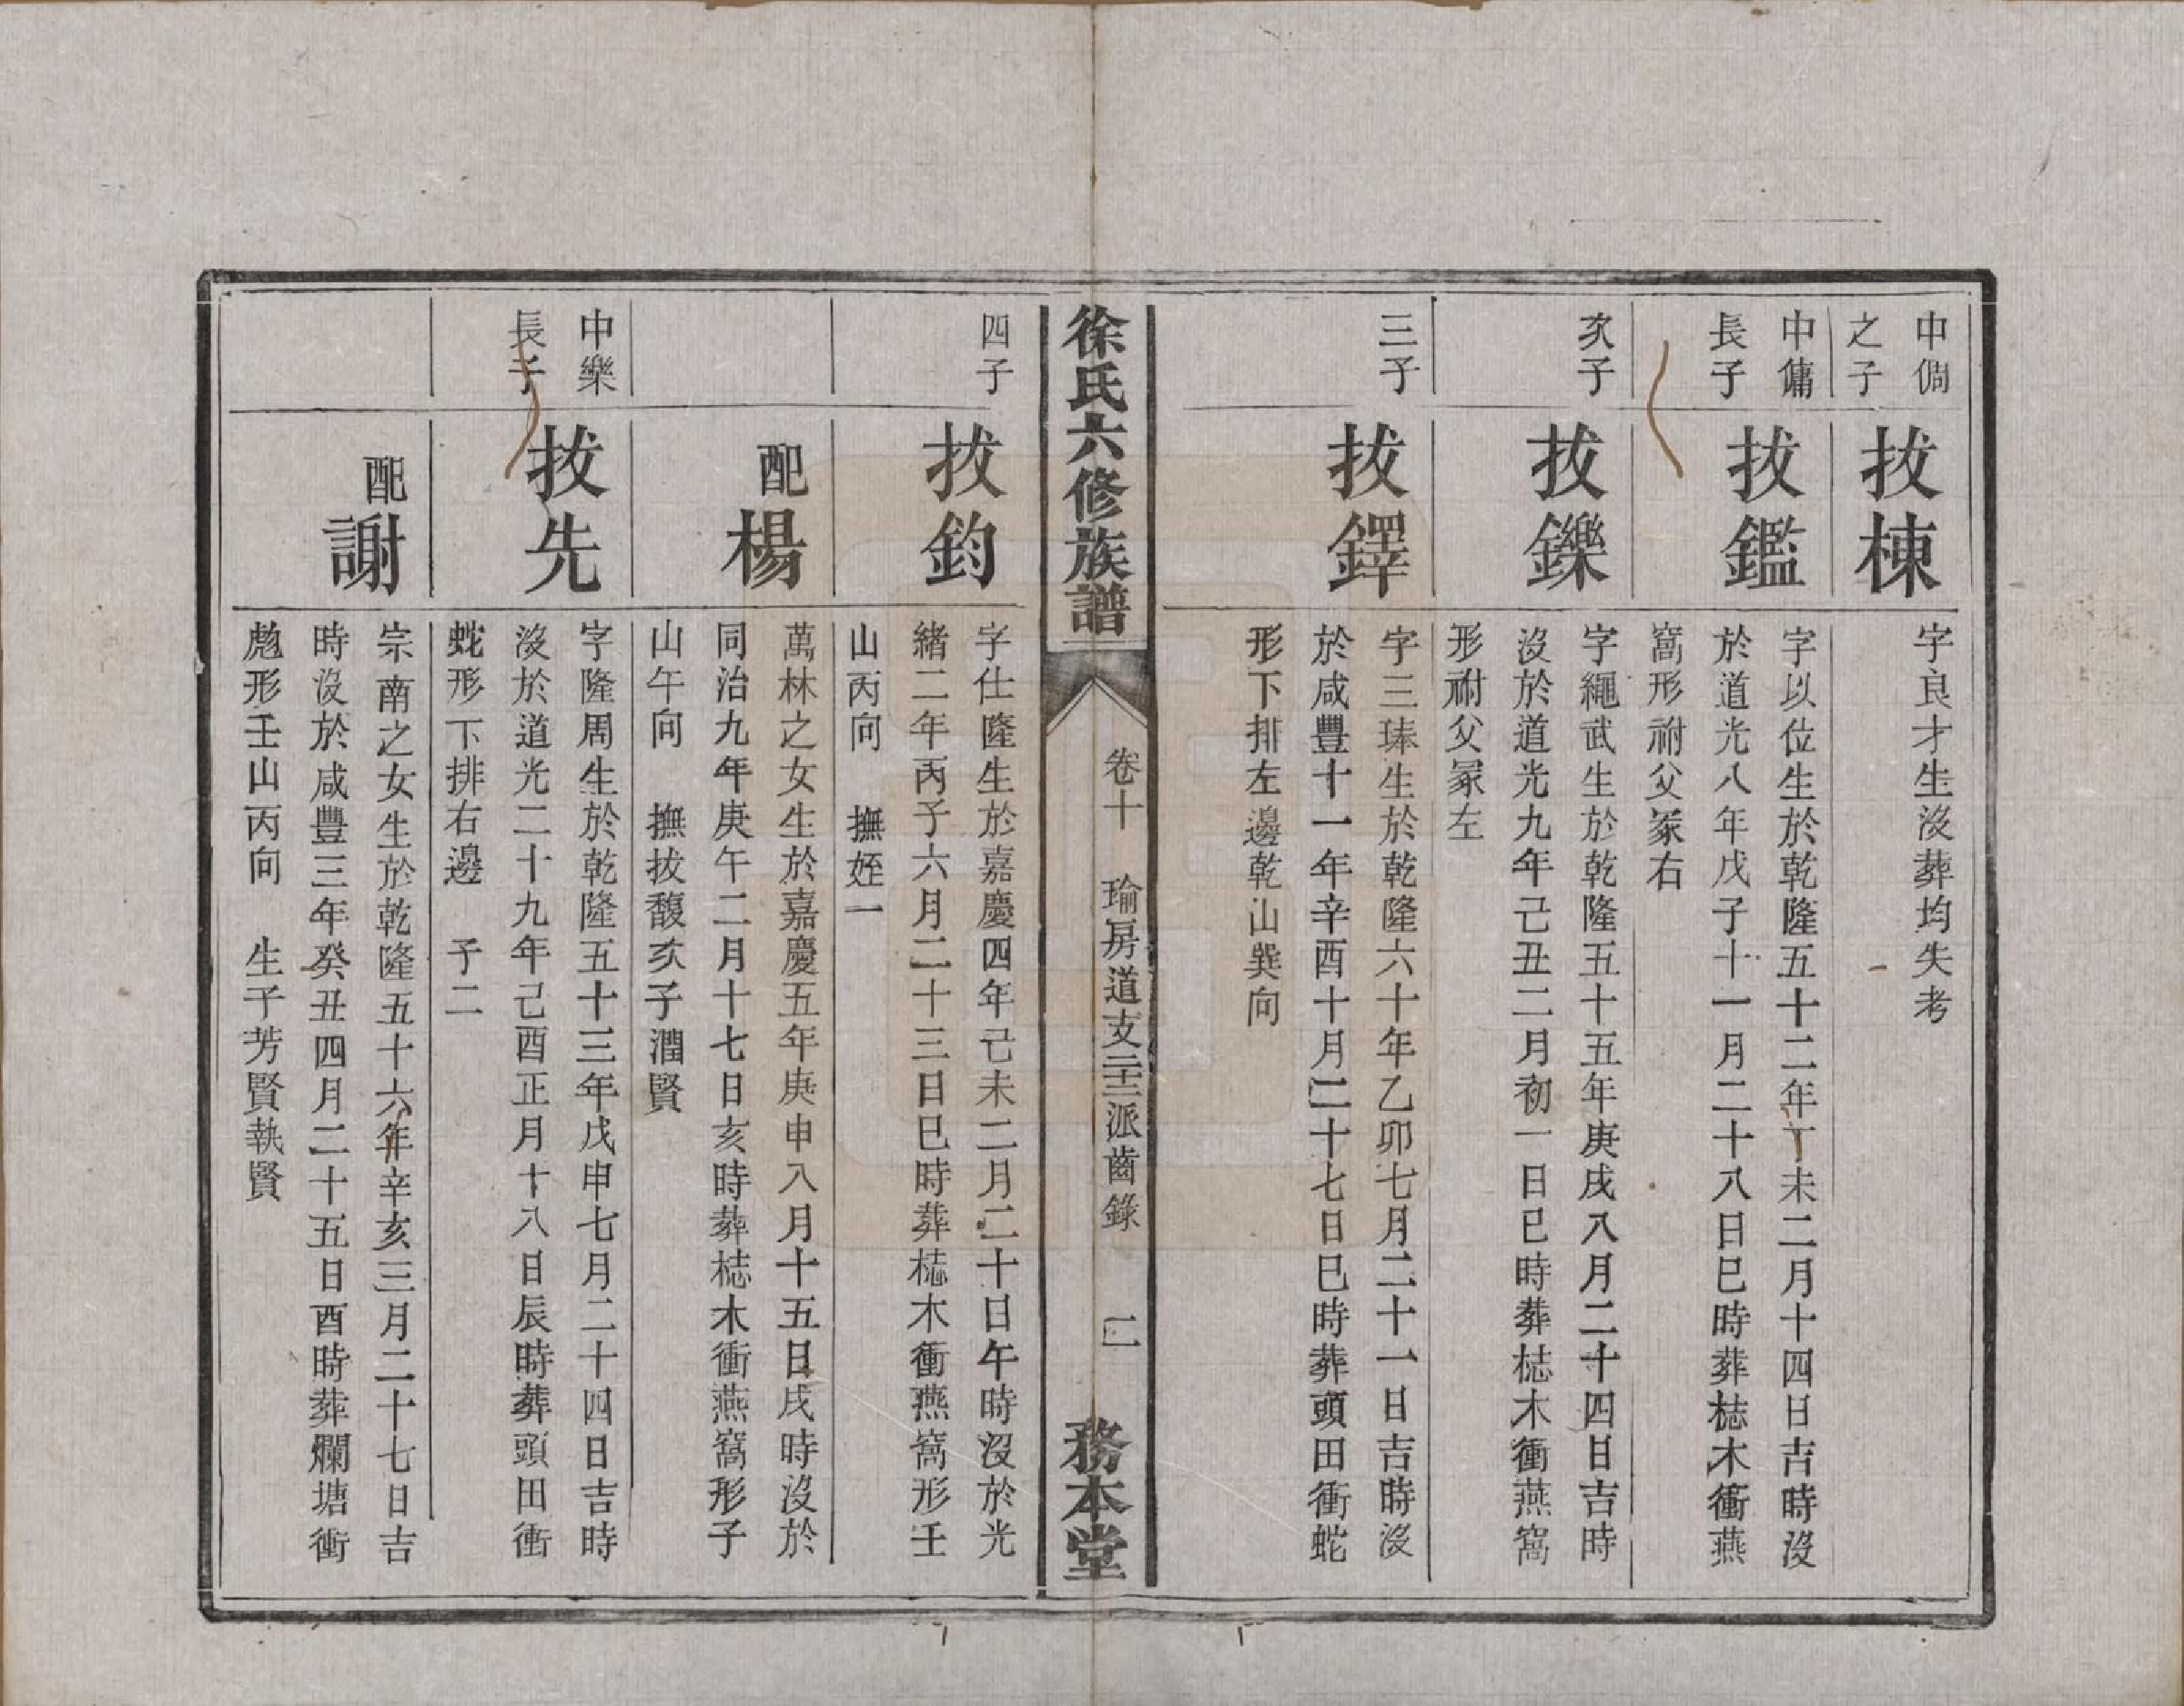 中倜
之子
拔棟
字良才生沒葬均失考
中傭
長子
拔鑑
字以位生於乾隆五十二年丁未二月十四日吉時沒
於道光八年戊子十一月二十八日巳時葬梽木衝燕
窩形祔父冢右
次子
拔鑠
字繩武生於乾隆五十五年庚戌八月二十四日吉時
沒於道光九年己丑二月初一日巳時葬梽木衝燕窩
形祔父冡左
三子
拔鐸
字三瑧生於乾隆六十年乙卯七月二十一日吉時沒
於咸豐十一年辛酉十月二十七日巳時葬頭田衝蛇
形下排左邊乾山巽向
徐氏六修族譜
卷十 瑜房道支二十三派齒錄 二
務本堂
四子
拔鈞
字仕隆生於嘉慶四年己未二月二十日午時沒於光
緒二年丙子六月二十三日巳時葬梽木衝燕窩形壬
山丙向 撫姪一
配楊
萬林之女生於嘉慶五年庚申八月十五日戌時沒於
同治九年庚午二月十七日亥時葬梽木衝燕窩形子
山午向 撫拔馥次子潤賢
中樂
長子
拔先
字隆周生於乾隆五十三年戊申七月二十四日吉時
沒於道光二十九年己酉正月十八日辰時葬頭田衝
蛇形下排右邊 子二
配謝
宗南之女生於乾隆五十六年辛亥三月二十七日吉
時沒於咸豐三年癸丑四月二十五日酉時葬爛塘衝
彪形壬山丙向 生子芳賢執賢